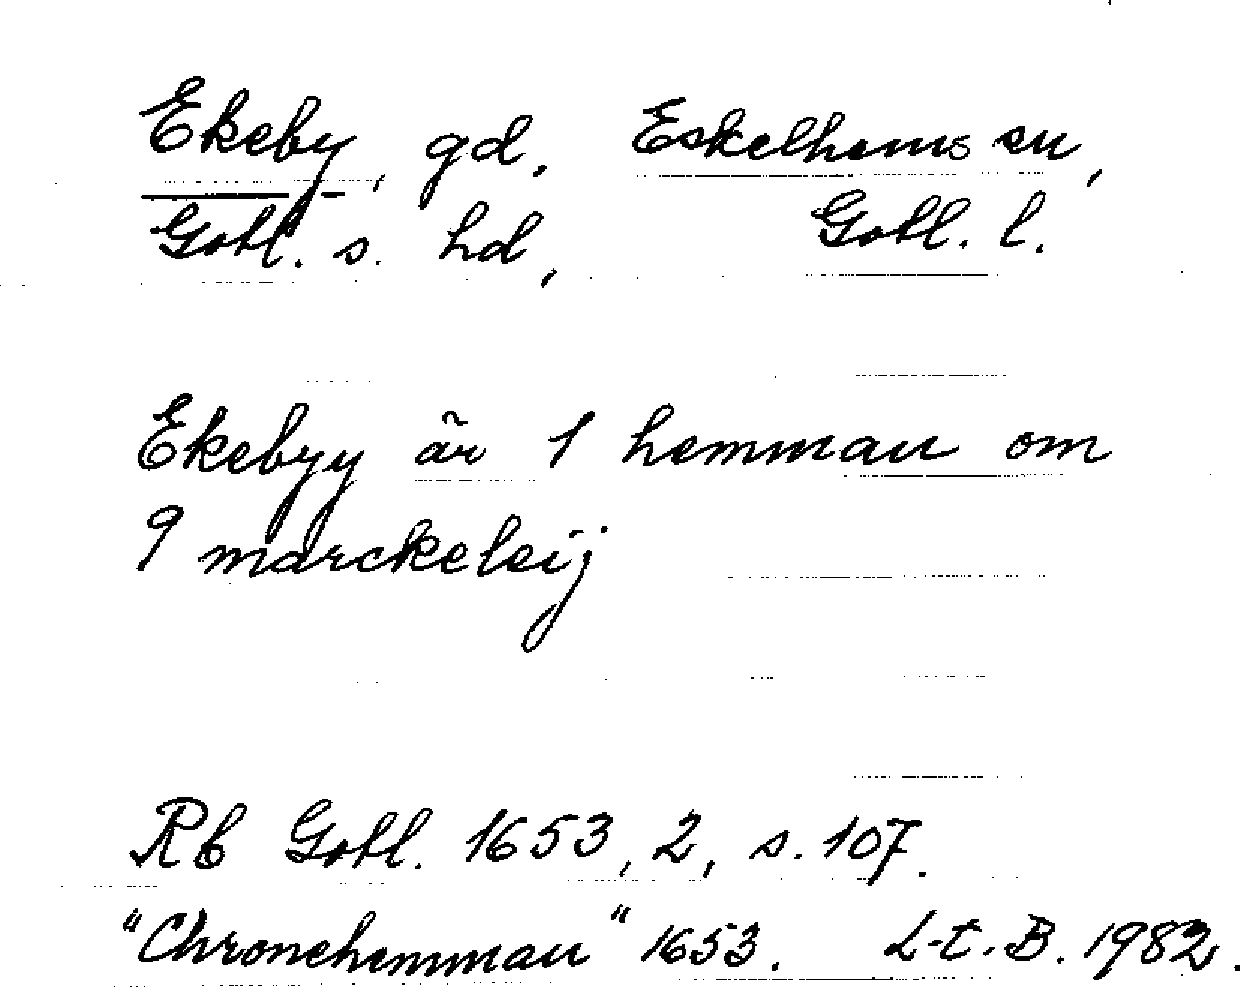 Ekeby, gd. Eskelhems sn,
Gotl. s. hd, Gotl. l.
Ekebyy är 1 hemman om
9 marckeleij
Rb Gotl. 1653, 2, s. 107.
"Chronehemman" 1653. L-t. B. 1982.